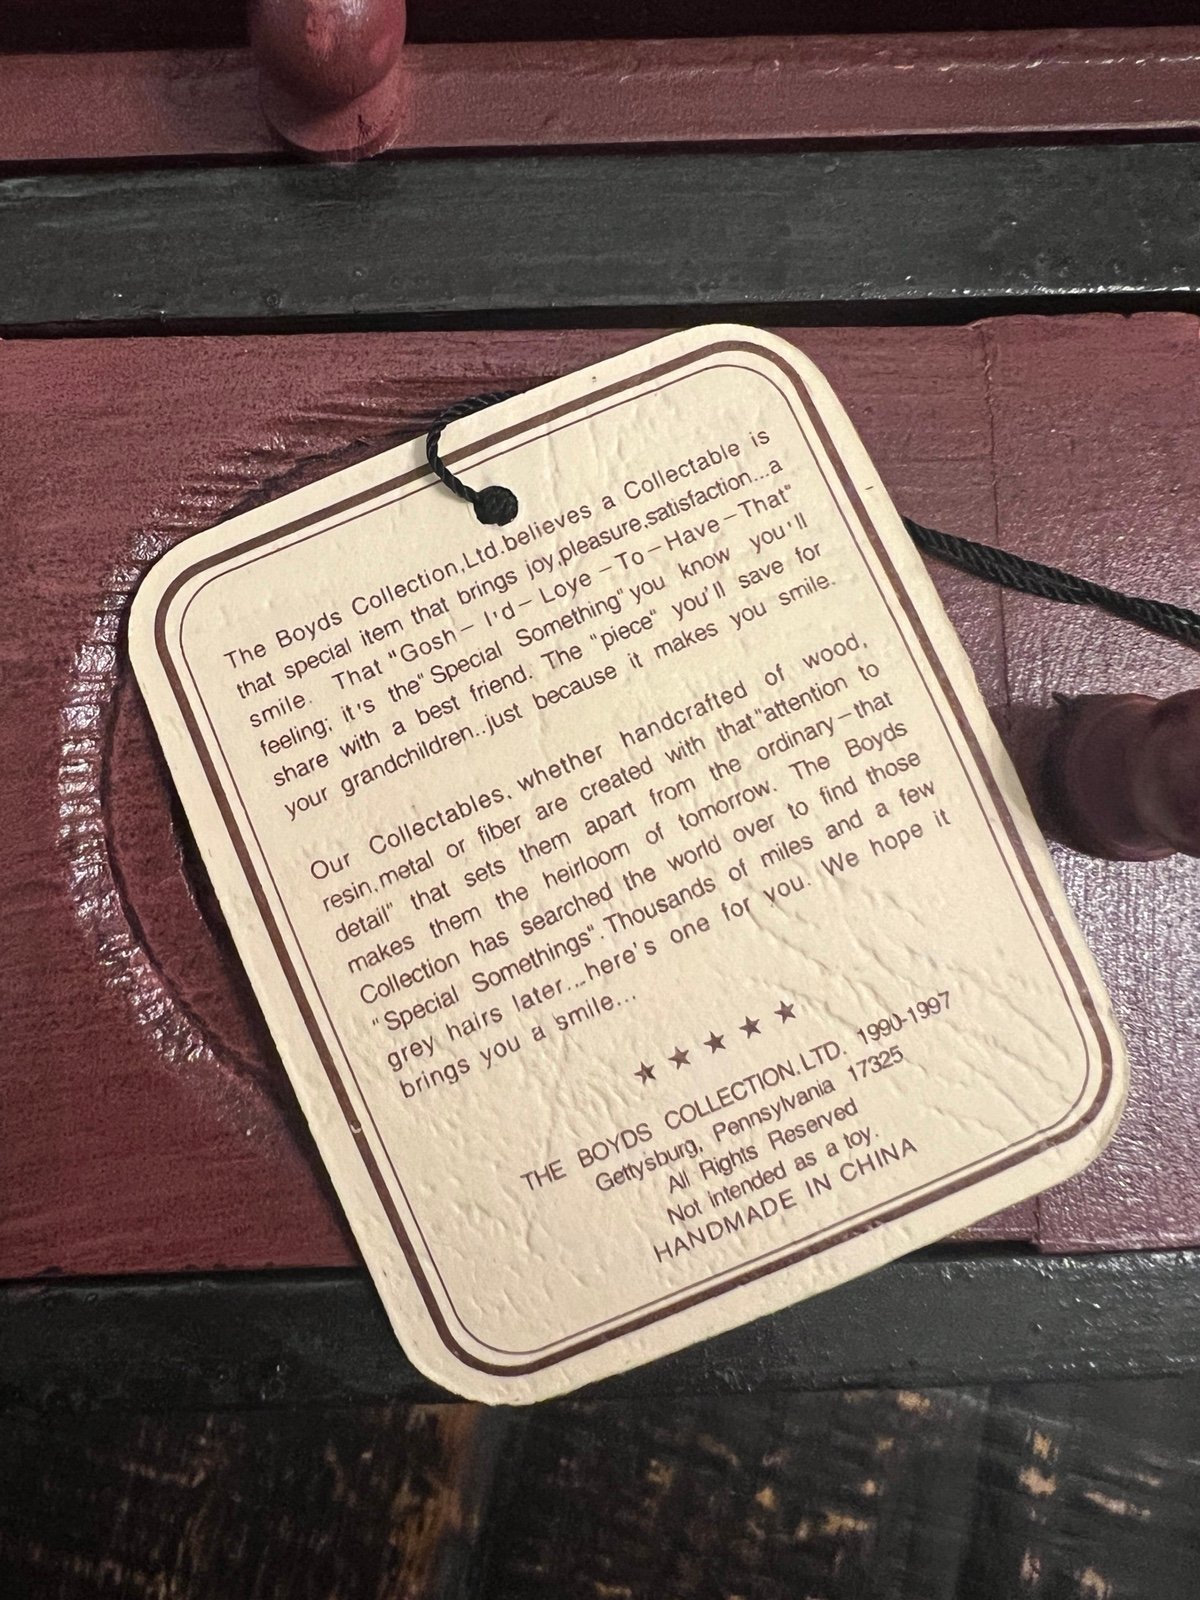 The Boyds Collection,Ltd.believes a Collectable is
that special item that brings joy,pleasure,satisfaction...a
smile. That "Gosh – I'd – Loye – To – Have – That"
feeling; it's the "Special Something" you know you'll
share with a best friend. The "piece" you'll save for
your grandchildren..just because it makes you smile.
Our Collectables, whether handcrafted of wood,
resin,metal or fiber are created with that "attention to
detail" that sets them apart from the ordinary – that
makes them the heirloom of tomorrow. The Boyds
Collection has searched the world over to find those
"Special Somethings". Thousands of miles and a few
grey hairs later...here's one for you. We hope it
brings you a smile...
★ ★ ★ ★ ★
THE BOYDS COLLECTION.LTD. 1990-1997
Gettysburg, Pennsylvania 17325
All Rights Reserved
Not intended as a toy.
HANDMADE IN CHINA